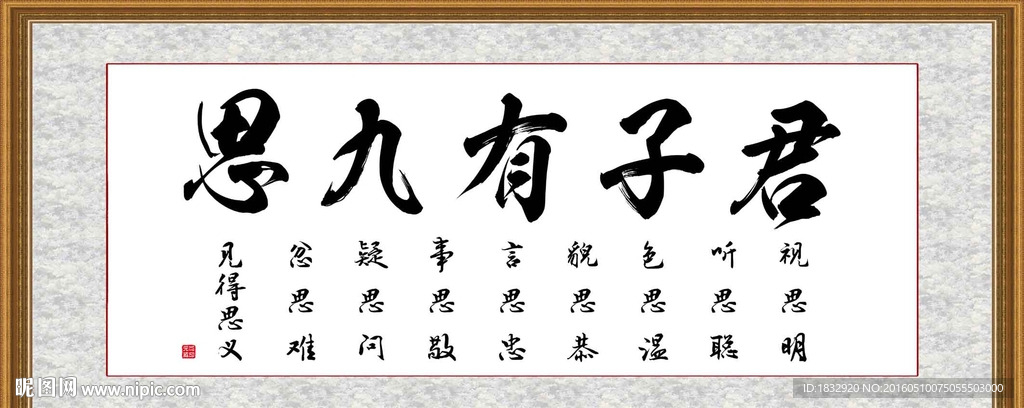 君子有九思
视思明
听思聪
色思温
貌思恭
言思忠
事思敬
疑思问
忿思难
见得思义
昵图网 www.nipic.com
ID:1832920 NO:20160510075055503000